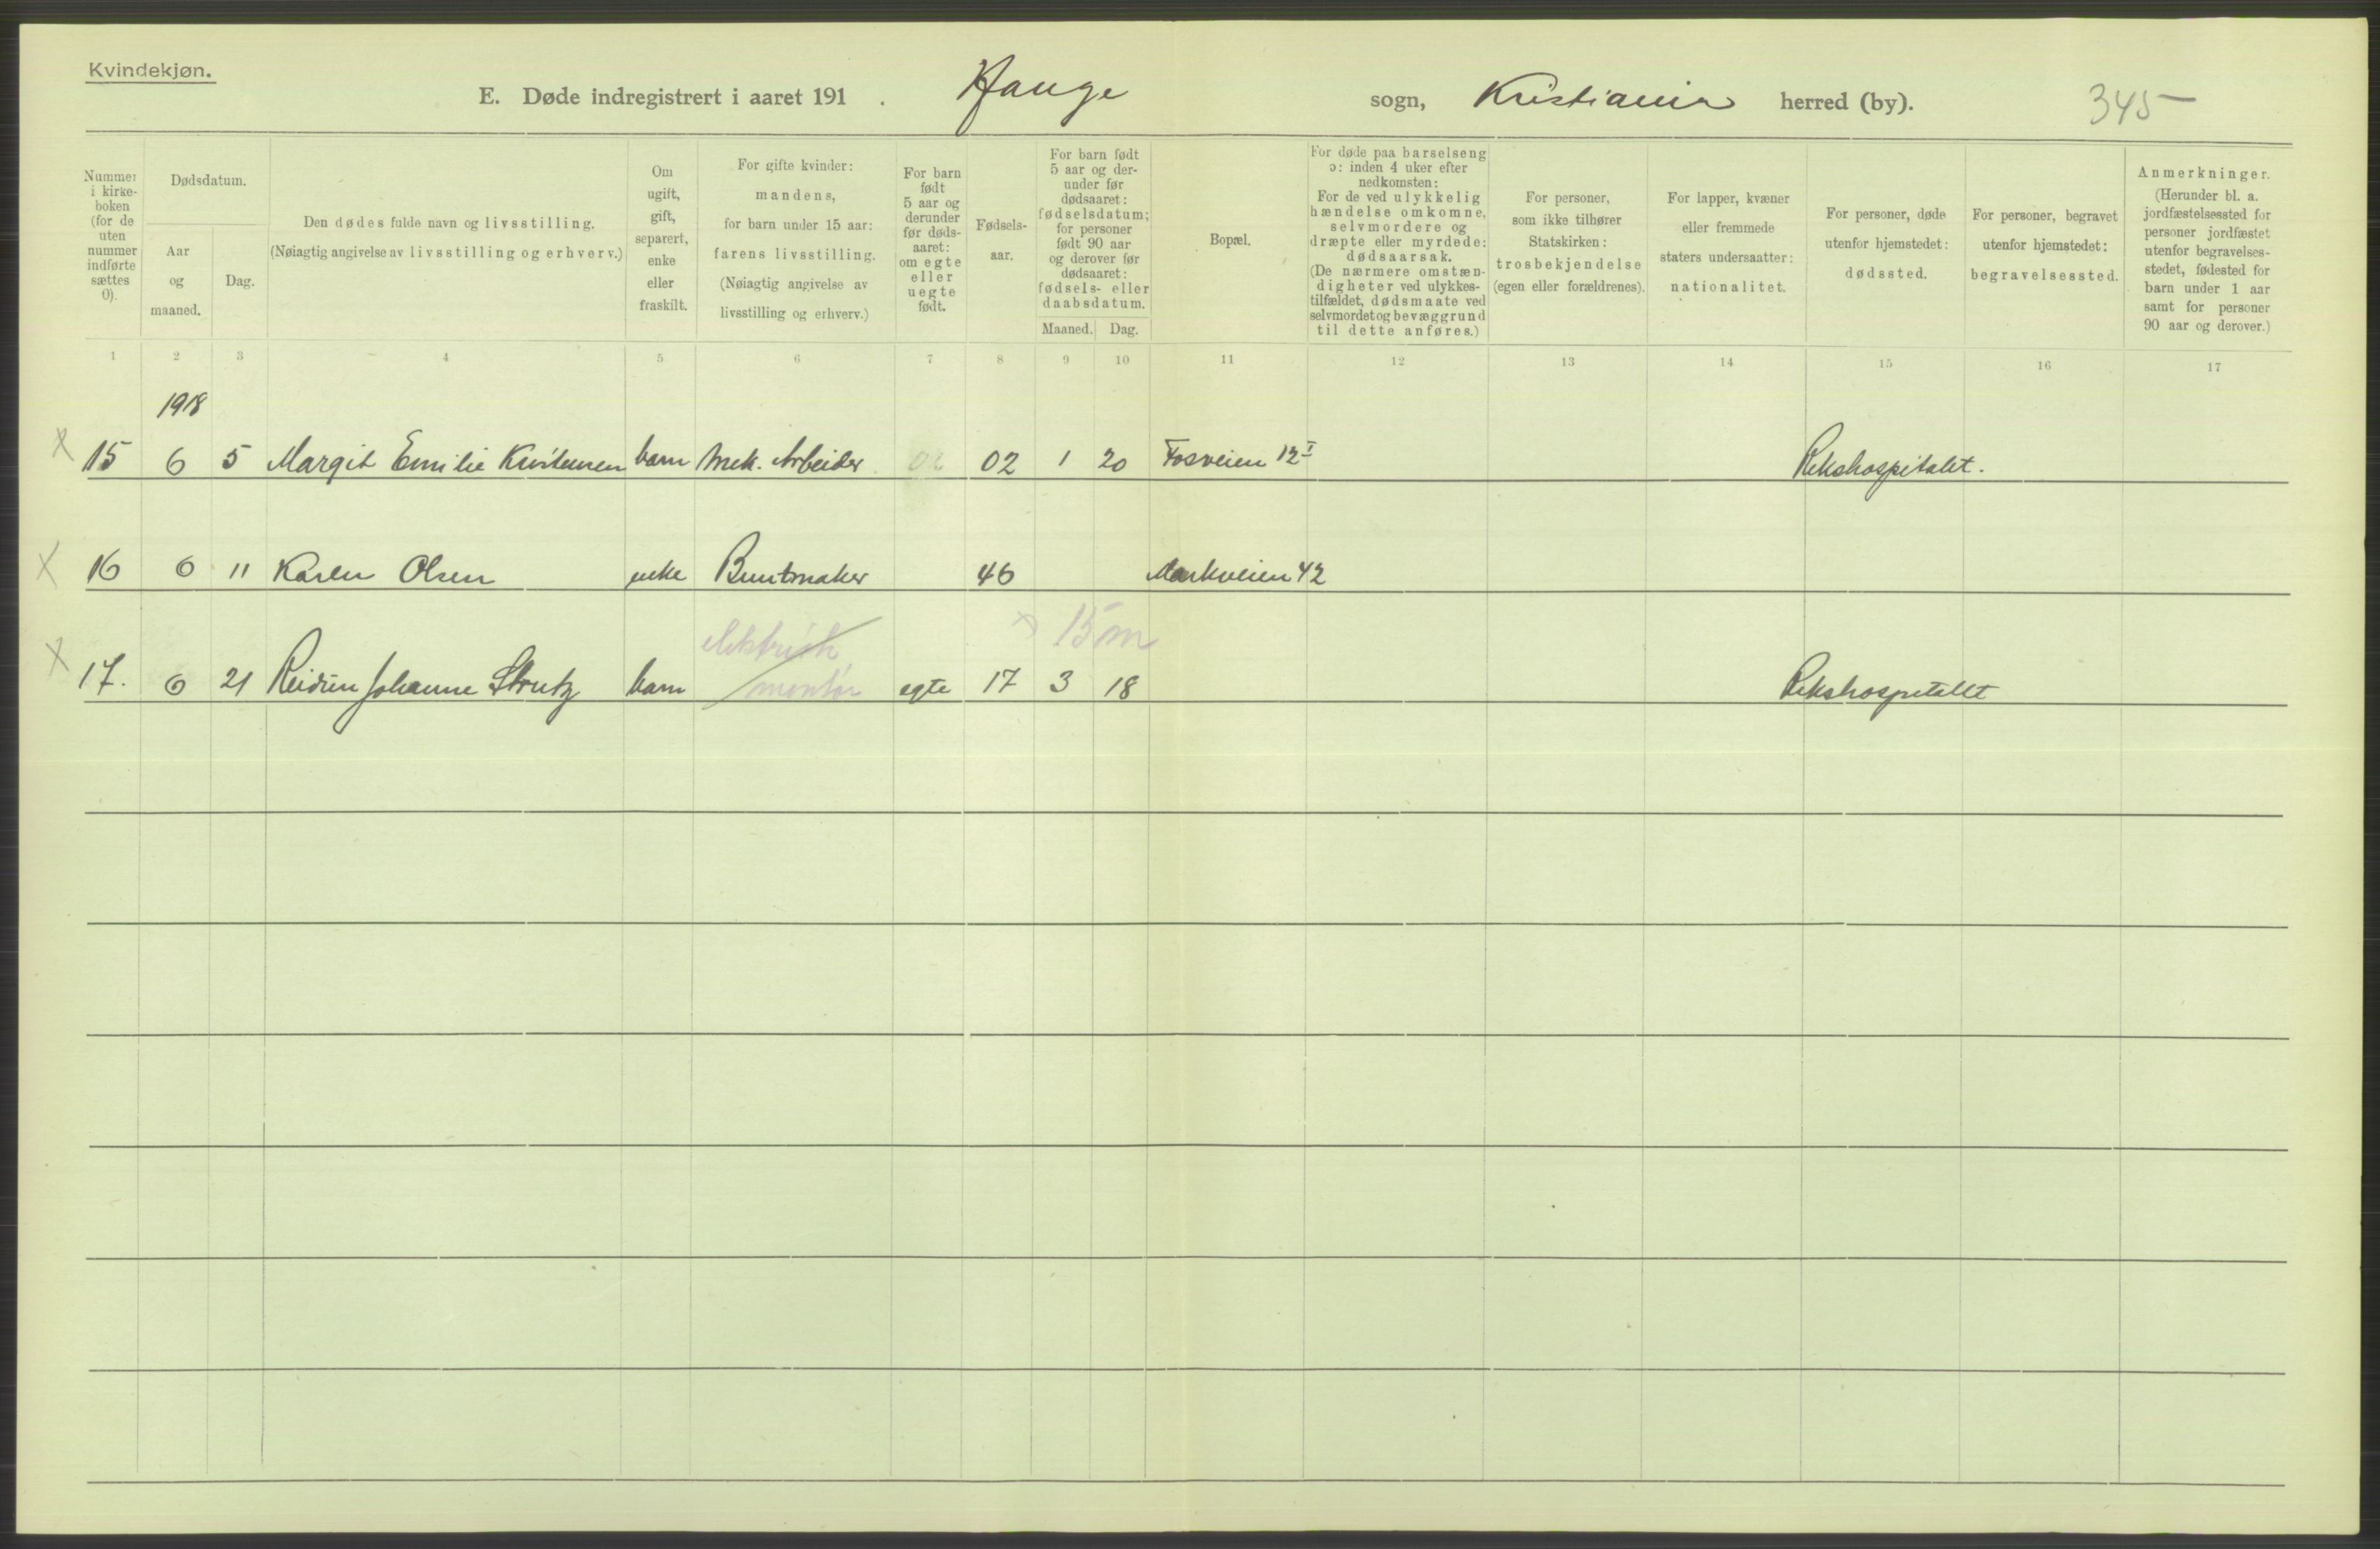 Kvindekjøn.
E. Døde indregistrert i aaret 191 . Hauge sogn, Kristiania herred (by). 345
Nummer i kirke- boken (for de uten nummer indførte sættes 0).
Dødsdatum.
Aar og maaned.
Dag.
Den dødes fulde navn og livsstilling.
(Nøiagtig angivelse av livsstilling og erhverv.)
Om ugift, gift, separert, enke eller fraskilt.
For gifte kvinder: mandens, for barn under 15 aar: farens livsstilling. (Nøiagtig angivelse av livsstilling og erhverv.)
For barn født 5 aar og derunder før døds- aaret: om egte eller uegte født.
Fødsels- aar.
For barn født 5 aar og der- under før dødsaaret: fødselsdatum; for personer født 90 aar og derover før dødsaaret: fødsels- eller daabsdatum.
Maaned. Dag.
Bopæl.
For døde paa barselseng ɔ: inden 4 uker efter nedkomsten: For de ved ulykkelig hændelse omkomne, selvmordere og dræpte eller myrdede: dødsaarsak. (De nærmere omstæn- digheter ved ulykkes- tilfældet, dødsmaate ved selvmordet og bevæggrund til dette anføres.)
For personer, som ikke tilhører Statskirken: trosbekjendelse (egen eller forældrenes).
For lapper, kvæner eller fremmede staters undersaatter: nationalitet.
For personer, døde utenfor hjemstedet: dødssted.
For personer, begravet utenfor hjemstedet: begravelsessted.
Anmerkninger. (Herunder bl. a. jordfæstelsessted for personer jordfæstet utenfor begravelses- stedet, fødested for barn under 1 aar samt for personer 90 aar og derover.)
1 2 3 4 5 6 7 8 9 10 11 12 13 14 15 16 17
1918
x 15 6 5 Margit Emilie barn Mek. Arbeider 02 1 20 Fosveien 12 I Rikshospitalet.
x 16 6 11 Karen Olsen enke Buntmaker 46 Markveien 42
elektrisk x 15 m
x 17. 6 21 Reidun Johanne Strutz barn montør egte 17 3 18 Rikshospitalet